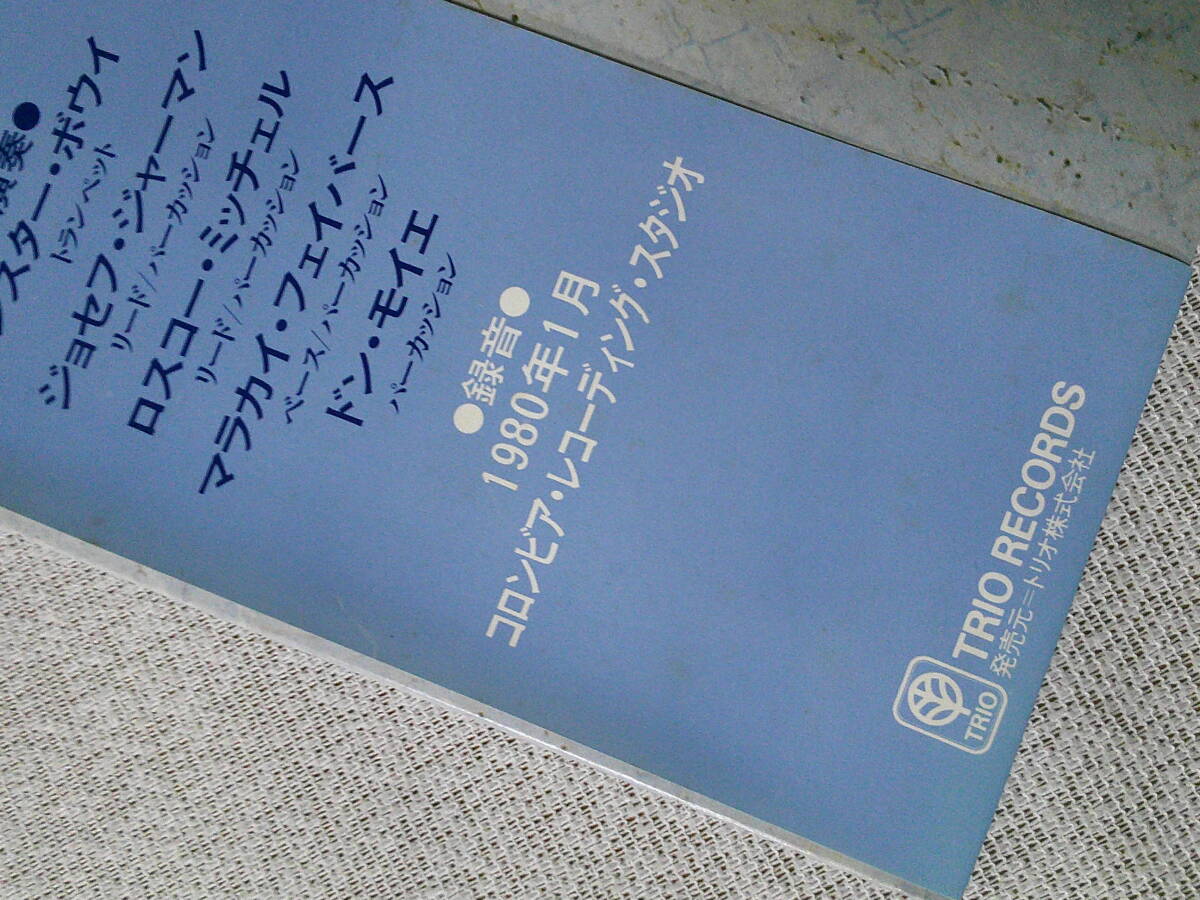 演奏●
スター・ボウイ
トランペット
ジョセフ・ジャーマン
リード/パーカッション
ロスコー・ミッチェル
リード/パーカッション
マラカイ・フェイバース
ベース/パーカッション
ドン・モイエ
パーカッション
●録音●
1980年1月
コロンビア・レコーディング・スタジオ
TRIO
TRIO RECORDS
発売元=トリオ株式会社